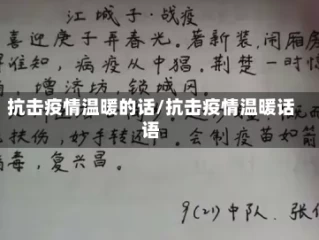 江城子·战疫
喜迎庚子弄春光。着新装,闹厢房
准知,病疫从中猖。荆楚一时
情,增济坊,锁城网。
抗击疫情温暖的话/抗击疫情温暖话
语
扶伤,妙手转还阳。会制疫苗如箭
病毒,复兴昌。
9(21)中队、张